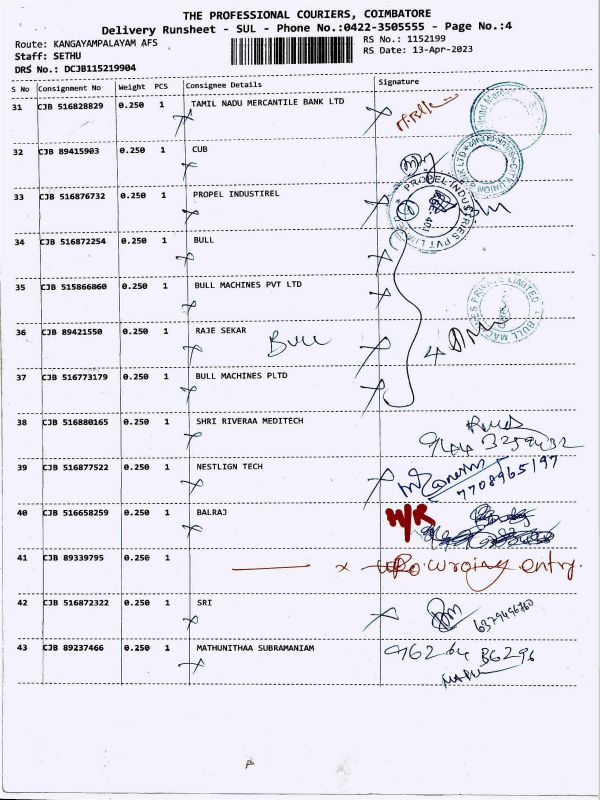 THE PROFESSIONAL COURIERS, COIMBATORE
Delivery Runsheet - SUL - Phone No.:0422-3505555 - Page No.:4
Route: KANGAYAMPALAYAM AFS
RS No.: 1152199
Staff: SETHU
RS Date: 13-Apr-2023
DRS No.: DCJB115219904
S No Consignment No Weight PCS Consignee Details Signature
31 CJB 516828829 0.250 1 TAMIL NADU MERCANTILE BANK LTD
32 CJB 89415903 0.250 1 CUB
33 CJB 516876732 0.250 1 PROPEL INDUSTIREL
PROPEL INDUSTRIES PVT LIM
34 CJB 516872254 0.250 1 BULL
35 CJB 515866860 0.250 1 BULL MACHINES PVT LTD
BULL MACHINES PRIVATE LIMITED
36 CJB 89421550 0.250 1 RAJE SEKAR Bull
4
37 CJB 516773179 0.250 1 BULL MACHINES PLTD
38 CJB 516880165 0.250 1 SHRI RIVERAA MEDITECH
39 CJB 516877522 0.250 1 NESTLIGN TECH
7708965197
40 CJB 516658259 0.250 1 BALRAJ H/R
41 CJB 89339795 0.250 1 x wroing entry.
42 CJB 516872322 0.250 1 SRI
6379496760
43 CJB 89237466 0.250 1 MATHUNITHAA SUBRAMANIAM 97626 86296